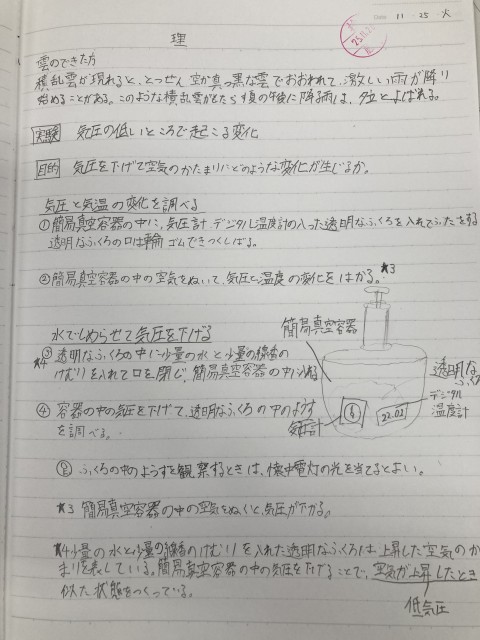 Date 11・25 火
25.11.
理
雲のできた方
積乱雲が現れると、とつぜん空が真っ黒な雲でおおわれて、激しい雨が降り
始めることがある。このような積乱雲がもたらす夏の午後に降る雨は、夕立とよばれる。
実験 気圧の低いところで起こる変化
目的 気圧を下げて空気のかたまりにどのような変化が生じるか。
気圧と気温の変化を調べる
①簡易真空容器の中に、気圧計、デジタル温度計の入った透明なふくろを入れてふたをする
透明なふくろの口は輪ゴムできつくしばる。
②簡易真空容器の中の空気をぬいて、気圧と温度の変化をはかる。★3
水でしめらせて気圧を下げる
③透明なふくろの中に少量の水と少量の線香の
★4 けむりを入れて口を閉じ、簡易真空容器の中に入れる
④容器の中の気圧を下げて、透明なふくろの中のようす
を調べる。
簡易真空容器
透明な
ふくろ
デジタル
温度計
気圧計
22.02
ふくろの中のようすを観察するときは、懐中電灯の光を当てるとよい。
★3 簡易真空容器の中の空気をぬくと、気圧が下がる。
★4 少量の水と少量の線香のけむりを入れた透明なふくろは上昇した空気のか
まりを表している。簡易真空容器の中の気圧を下げることで、空気が上昇したとき
似た状態をつくっている。
低気圧